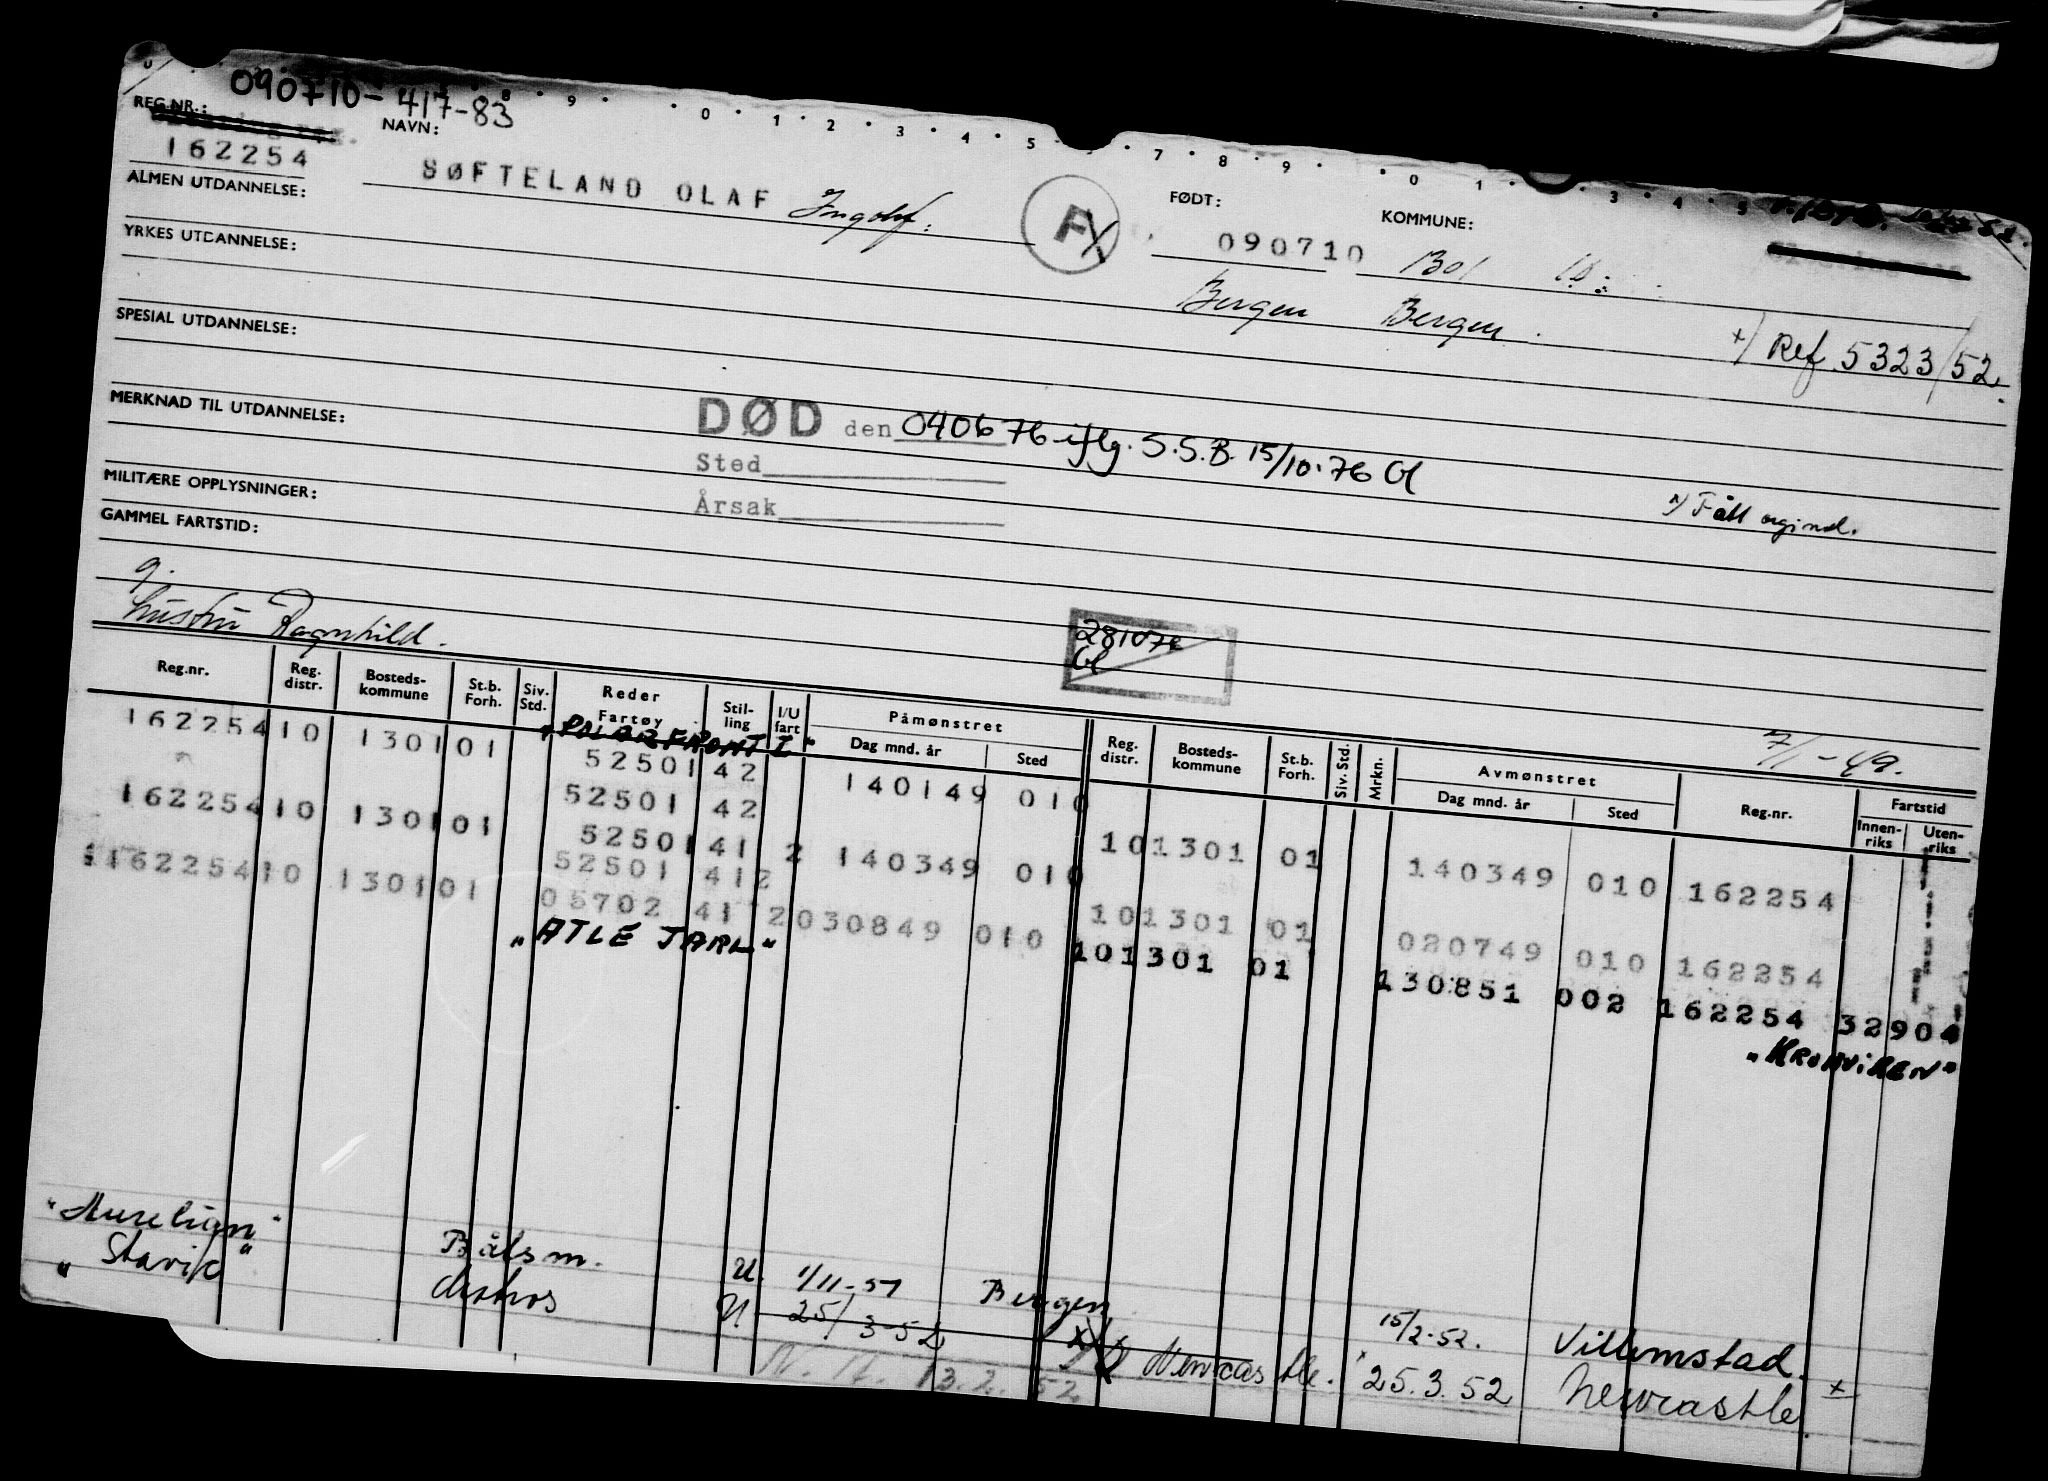 090710-417-83
0 1 2 3 4 5 7 8 9 0 1 3 4 5
REG.NR.:
162254
NAVN:
SØFTELAND OLAF Ingolf.
FX
FØDT:
090710
KOMMUNE:
1301 10
Bergen Bergen.
x) Ref. 5323/52.
ALMEN UTDANNELSE:
YRKES UTDANNELSE:
SPESIAL UTDANNELSE:
MERKNAD TIL UTDANNELSE:
DØD den 040676 iflg. S.S.B. 15/10.76
Sted
Årsak
x) Fått orginal.
MILITÆRE OPPLYSNINGER:
GAMMEL FARTSTID:
g.
hustru Ragnhild.
281076
7/1-49.
Reg.nr. Reg. distr. Bosteds-kommune St.b. Forh. Siv. Std. Reder Fartøy Stil-ling I/U fart Påmønstret Dag mnd. år Sted Reg. distr. Bosteds-kommune St.b. Forh. Siv. Std. Mrkn. Avmønstret Dag mnd. år Sted Reg.nr. Fartstid Innen-riks Uten-riks
"POLARFRONT I"
162254 10 1301 01 52501 42 140149 010
52501 42 101301 01 140349 010 162254
162254 10 1301 01 52501 41 2 140349 010
52501 41 2 101301 01 020749 010 162254
162254 10 1301 01 05702 41 2 030849 010
101301 01 130851 002 162254 32904
"ATLE JARL"
"KRONVIKEN"
"Aurelian" Båtsm. U. 1/11-51 Bergen 15/2-52. Villemstad.
"Stavik" U 25/3-52 Newcastle. 25.3.52 Newcastle x
13.2.52